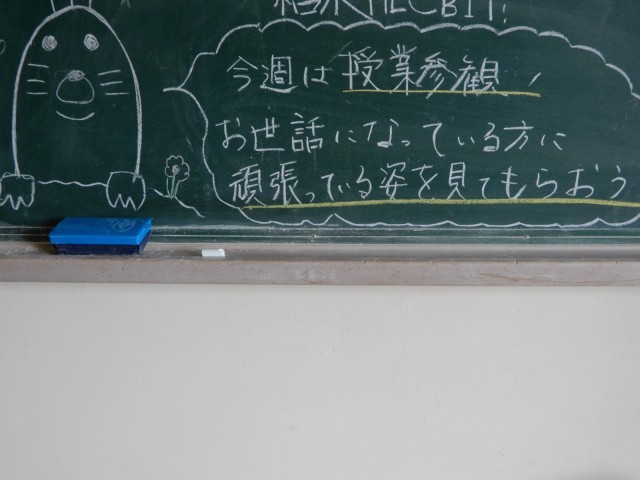 今週は授業参観！
お世話になっている方に
頑張っている姿を見てもらおう